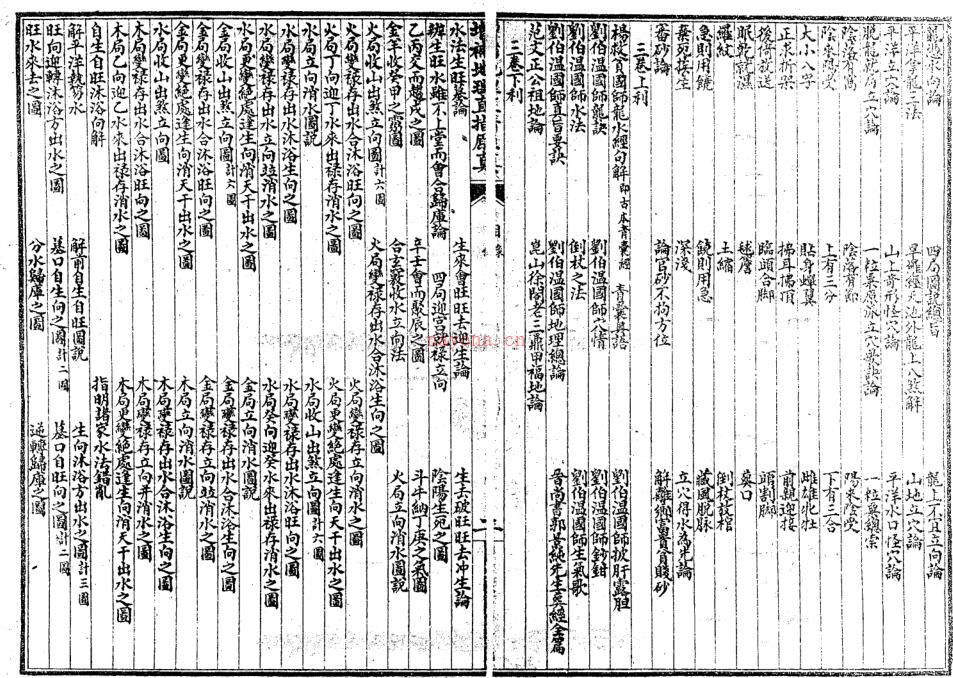 龍水向論
四局圖說總旨
龍上不宜立向論
平洋龍三法
山地立穴論
平洋立穴論
山上奇形怪穴論
平洋水口怪穴論
一粒粟原脉立穴要訣論
陰陽落萬
陰落有節
陽來陰受
陰來陽受
上有三分
下有三合
大小八字
貼身蟬翼
雌雄牝牡
正求折架
揚耳揚頂
前親迎接
後倚放送
臨頭合脚
眠乾就濕
毬簷
羅紋
土縮
倒杖放棺
急則用饒
饒則用急
藏風脫脉
棄死挨生
深淺
立穴得水為先論
番砂論
論官砂不拘方位
三卷上利
楊救貧國師龍水經句解 即古本青囊經
青囊奧語
劉伯溫國師披肝露胆
劉伯溫國師龍訣
劉伯溫國師穴情
劉伯溫國師鈐鉗
劉伯溫國師水法
倒杖之法
劉伯溫國師生氣歌
劉伯溫國師真旨要訣
劉伯溫國師地理總論
晉尚書郭景純先生葬經全篇
范文正公祖地論
崑山徐閣老三鼎甲福地論
三卷下利
增補地理直指原真
目錄
水法生旺墓論
生來會旺旺去迎生論
生去破旺旺去冲生論
辨生旺水雖不上堂而會合歸庫論
四局迎官就祿立向
陰陽生死之圖
乙丙交而趨戌之圖
辛壬會而聚辰之圖
斗牛納丁庚之氣圖
金羊收癸甲之靈圖
合玄竅收水立向法
火局立向消水圖說
火局收山出煞立向圖計六圖
火局變祿存出水合沐浴生向之圖
火局變祿存出水合沐浴旺向之圖
火局變祿存立向消水之圖
火局丁向迎丁水來出祿存消水之圖
火局更變絕處逢生向天干出水之圖
水局立向消水圖說
水局收山出煞立向圖計六圖
水局變祿存出水沐浴生向之圖
水局變祿存出水沐浴旺向之圖
水局變祿存出水立向竝消水之圖
水局癸向迎癸水來出祿存消水之圖
水局更變絕處逢生向消天干出水之圖
金局立向消水圖說
金局收山出煞立向圖計六圖
金局變祿存出水合沐浴生向之圖
金局變祿存出水合沐浴旺向之圖
金局變祿存立向竝消水之圖
金局更變絕處逢生向消天干出水之圖
木局立向消水圖說
木局收山出煞立向圖
木局變祿存出水合沐浴生向之圖
木局變祿存出水合沐浴旺向之圖
木局變祿存立向并消水之圖
木局乙向迎乙水來出祿存消水之圖
木局更變絕處逢生向消天干出水之圖
自生自旺沐浴向解
指明諸家水法錯亂
解平洋執笏水
解前自生自旺圖說
生向沐浴方出水之圖計三圖
旺向迎轉沐浴方出水之圖
墓口自生向之圖計二圖
墓口自旺向之圖計二圖
旺水來去之圖
分水歸庫之圖
逆轉歸庫之圖